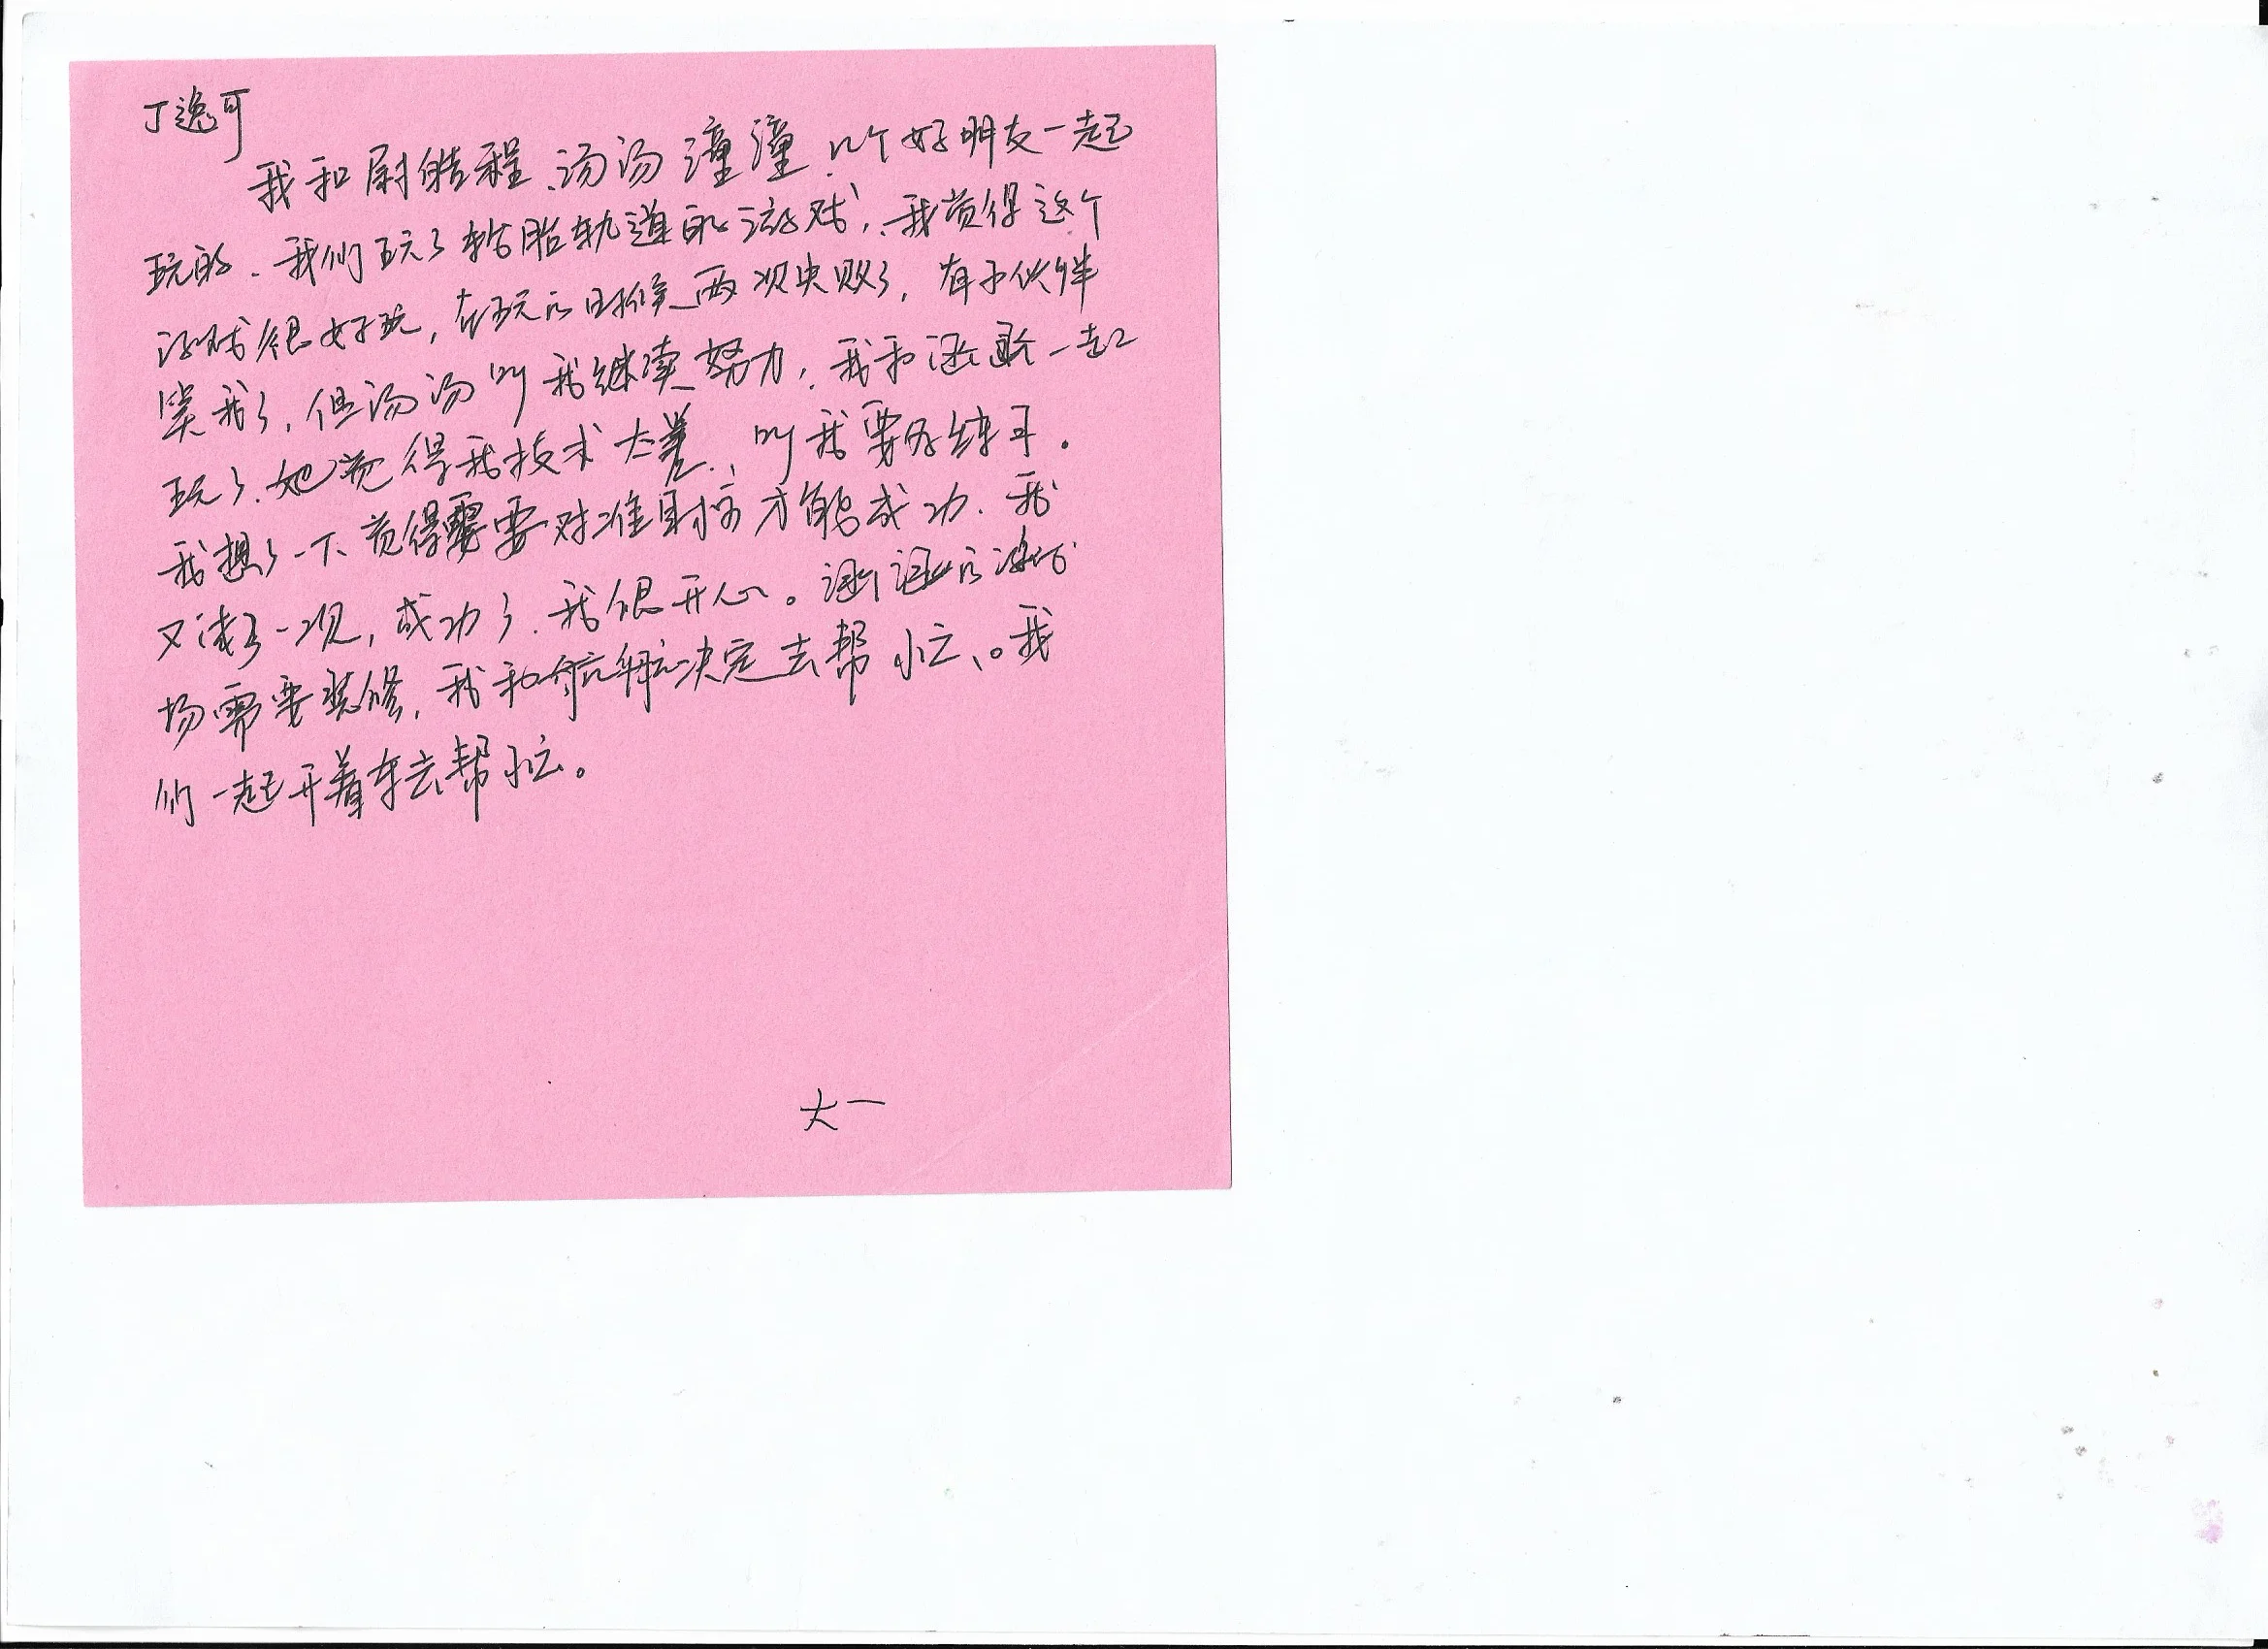 丁逸可
我和尉皓程、汤汤潼潼,几个好朋友一起
玩的、我们玩了轮胎轨道的游戏,我觉得这个
游戏很好玩,在玩的时候两次失败了,有小伙伴
笑我了,但汤汤叫我继续努力,我和涵涵一起
玩了、她觉得我技术太差,叫我要多练习。
我想了一下、觉得需要对准目标才能成功、我
又试了一次,成功了、我很开心。涵涵的游戏
场需要装修,我和航航决定去帮忙。我
们一起开着车去帮忙。
大一